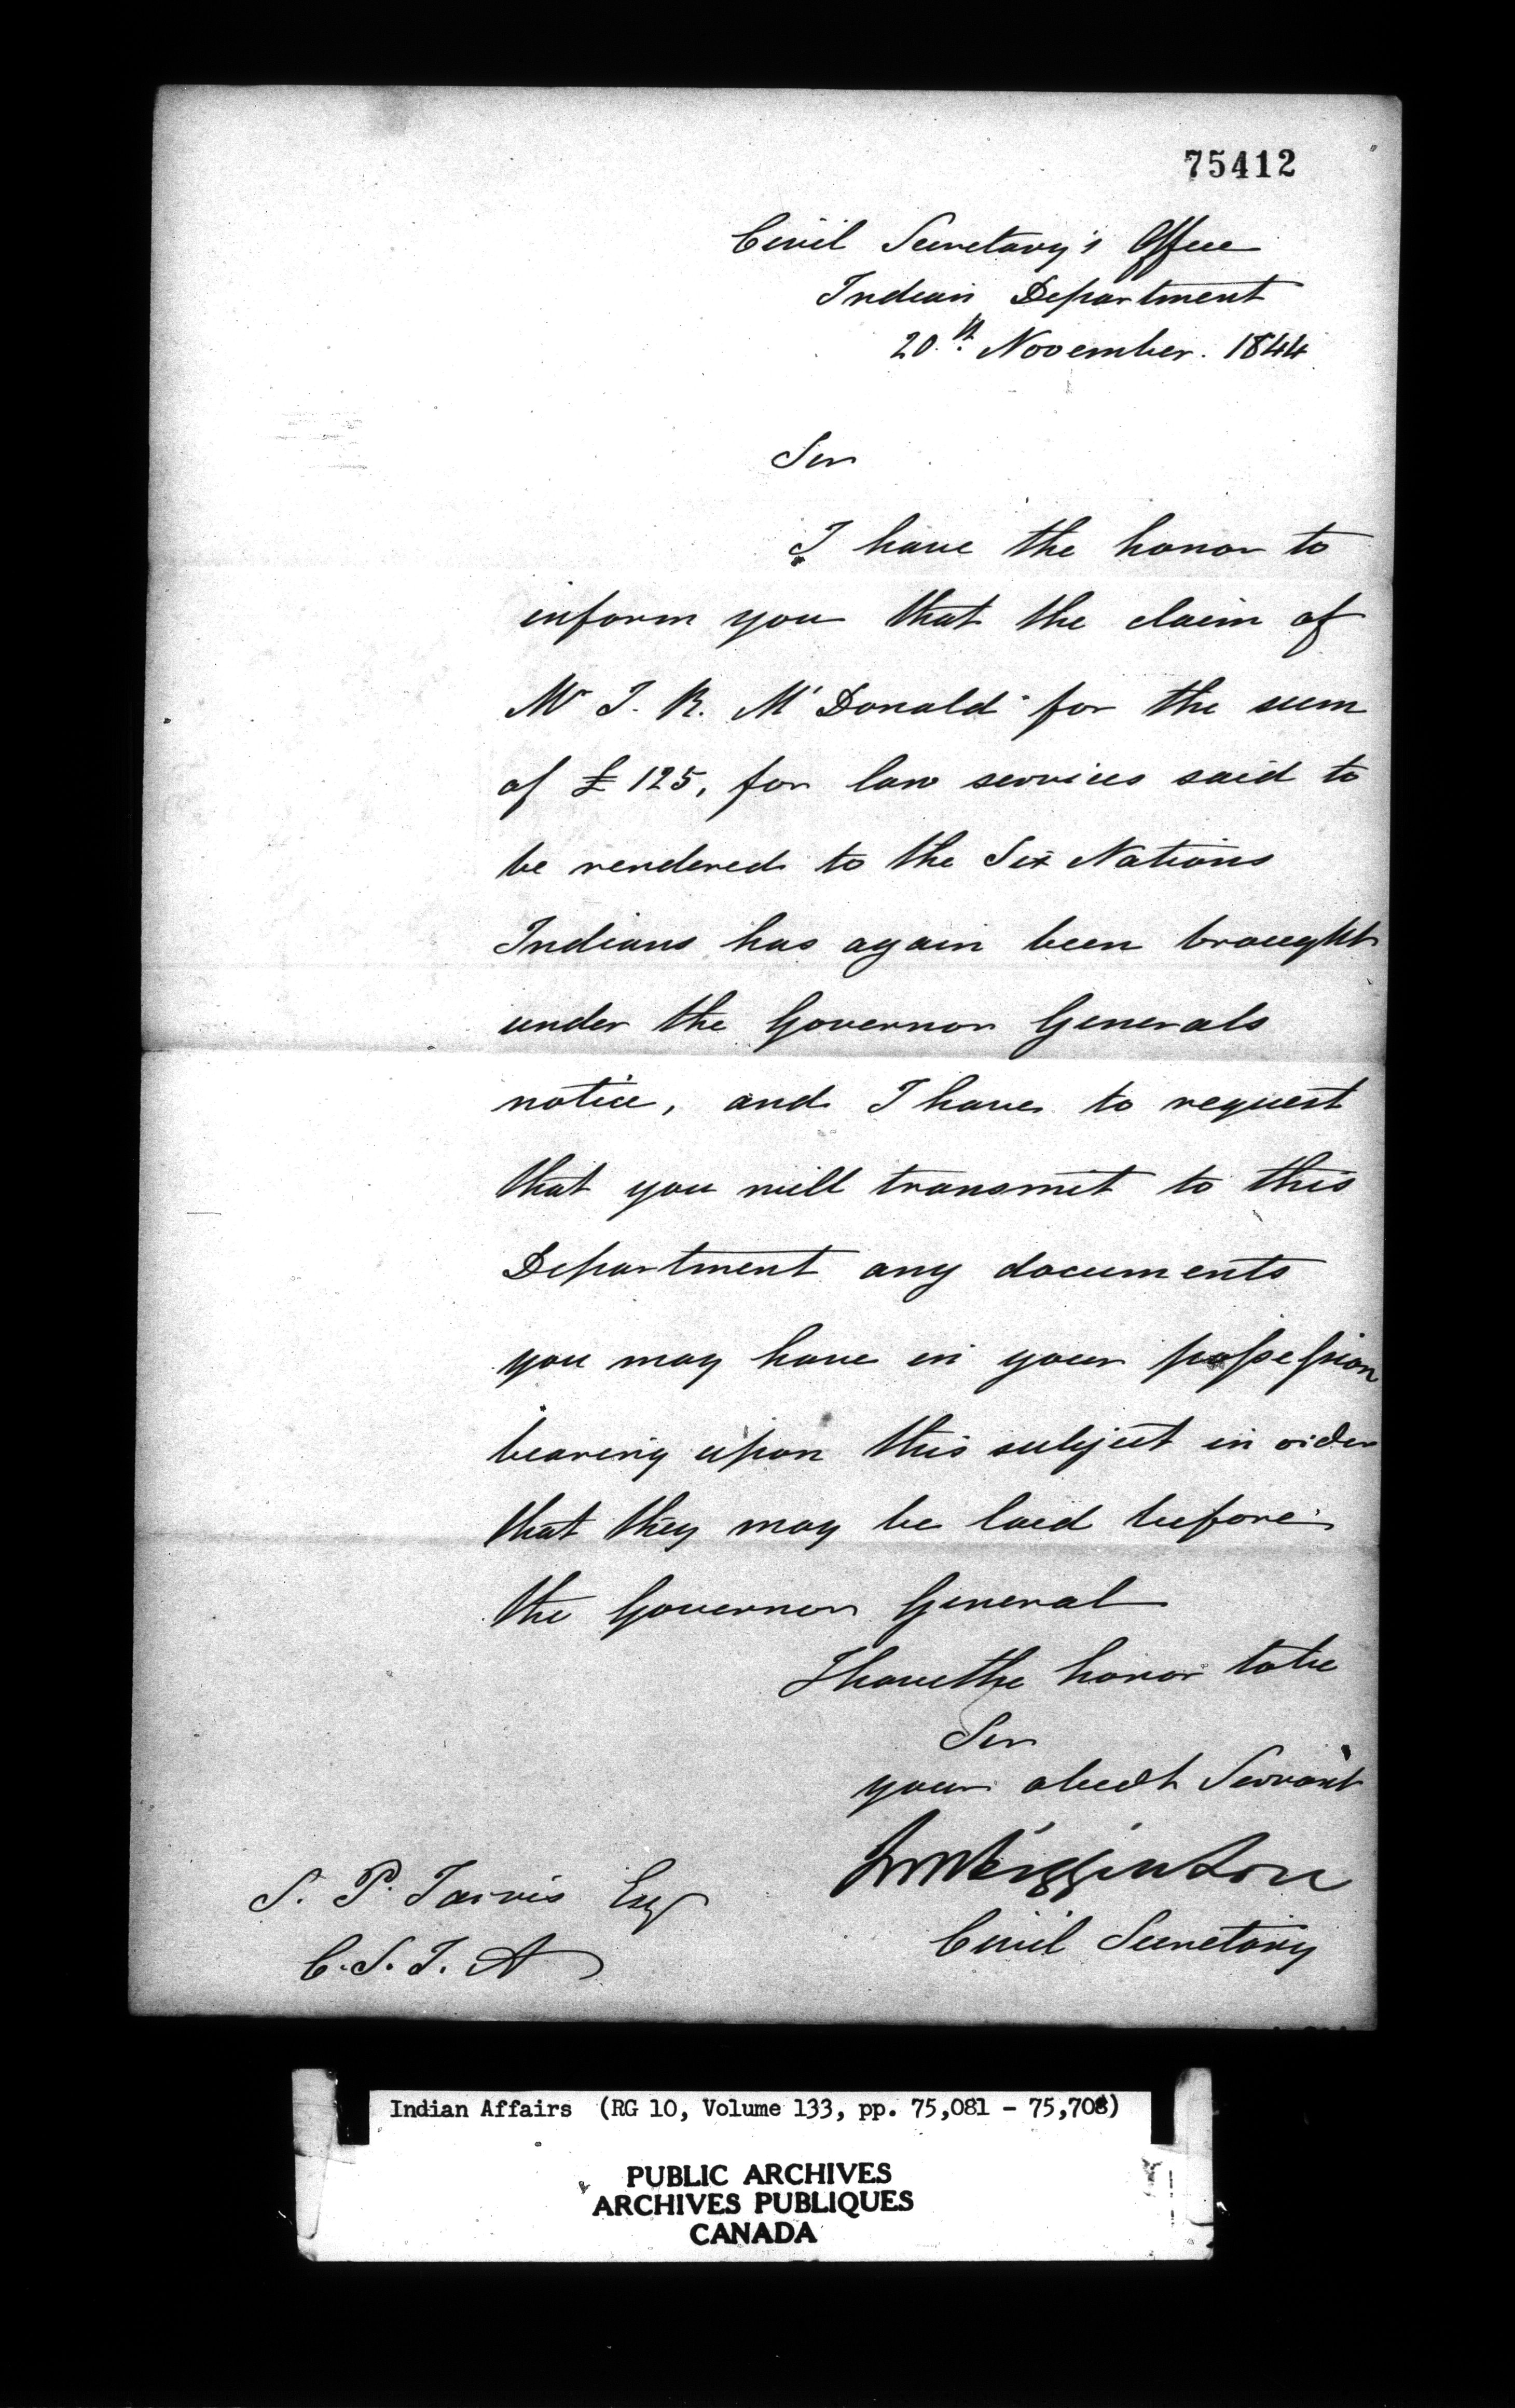 75412
Civil Secretary's Office
Indian Department
20th November. 1844
Sir
I have the honor to
inform you that the claim of
Mr J. R. McDonald for the sum
of £125, for law services said to
be rendered to the Six Nations
Indians has again been brought
under the Governor Generals
notice, and I have to request
that you will transmit to this
Department any documents
you may have in your possession
bearing upon this subject in order
that they may be laid before
the Governor General
I have the honor to be
Sir
your obedt Servant
JM Higginson
Civil Secretary
S. P. Jarvis Esq
C.S.I.A
Indian Affairs (RG 10, Volume 133, pp. 75,081 - 75,708)
PUBLIC ARCHIVES
ARCHIVES PUBLIQUES
CANADA